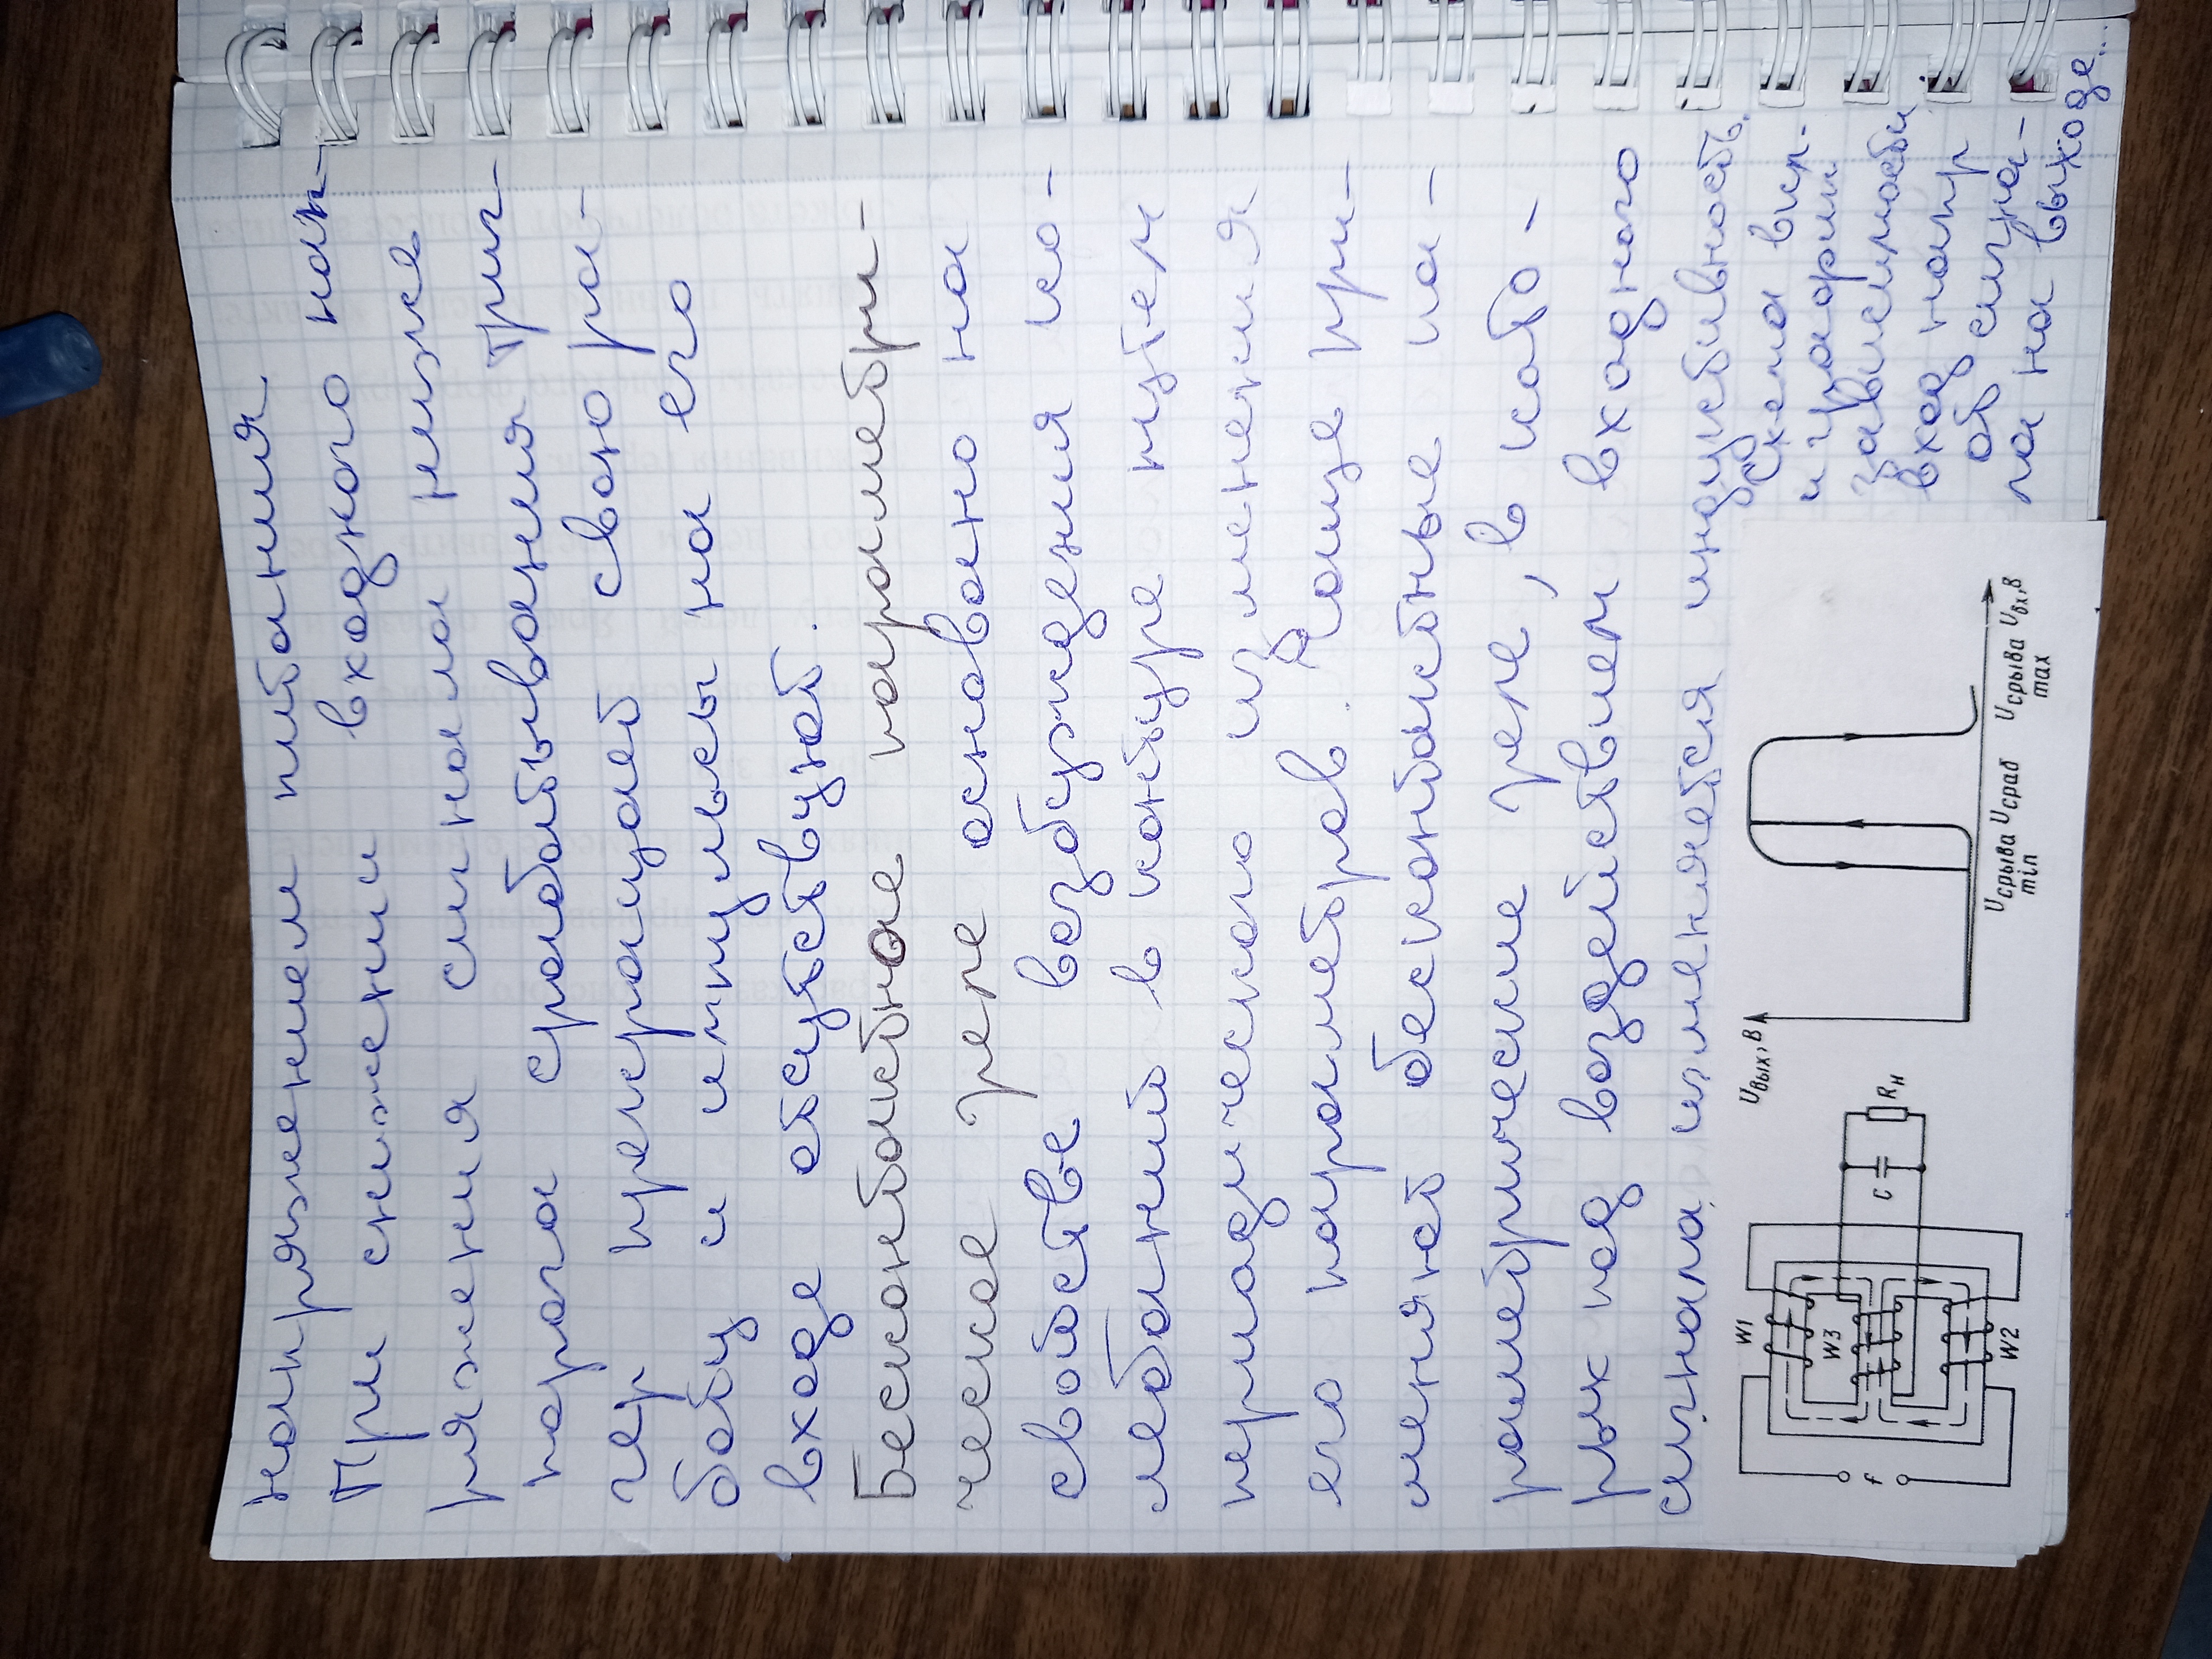 напряжением питания
При снижении входного нап-
ряжения сигнала ниже
порога срабатывания триг-
гер прекращает свою ра-
боту и импульсы на его
входе отсутствуют.
Бесконтактное параметри-
ческое реле основано на
свойстве возбуждения ко-
лебаний в контуре путем
периодического изменения
его параметров. Чаще при-
меняют бесконтактные па-
раметрические реле, в кото-
рых под воздействием входного
сигнала изменяется индуктивность.
Схема вкл.
и характ
зависимости
вход напр
от сигна-
ла на выходе...
W1
W3
W2
f
C
Rн
Uвых, В
Uсрыва min
Uсраб
Uсрыва max
Uвх, В